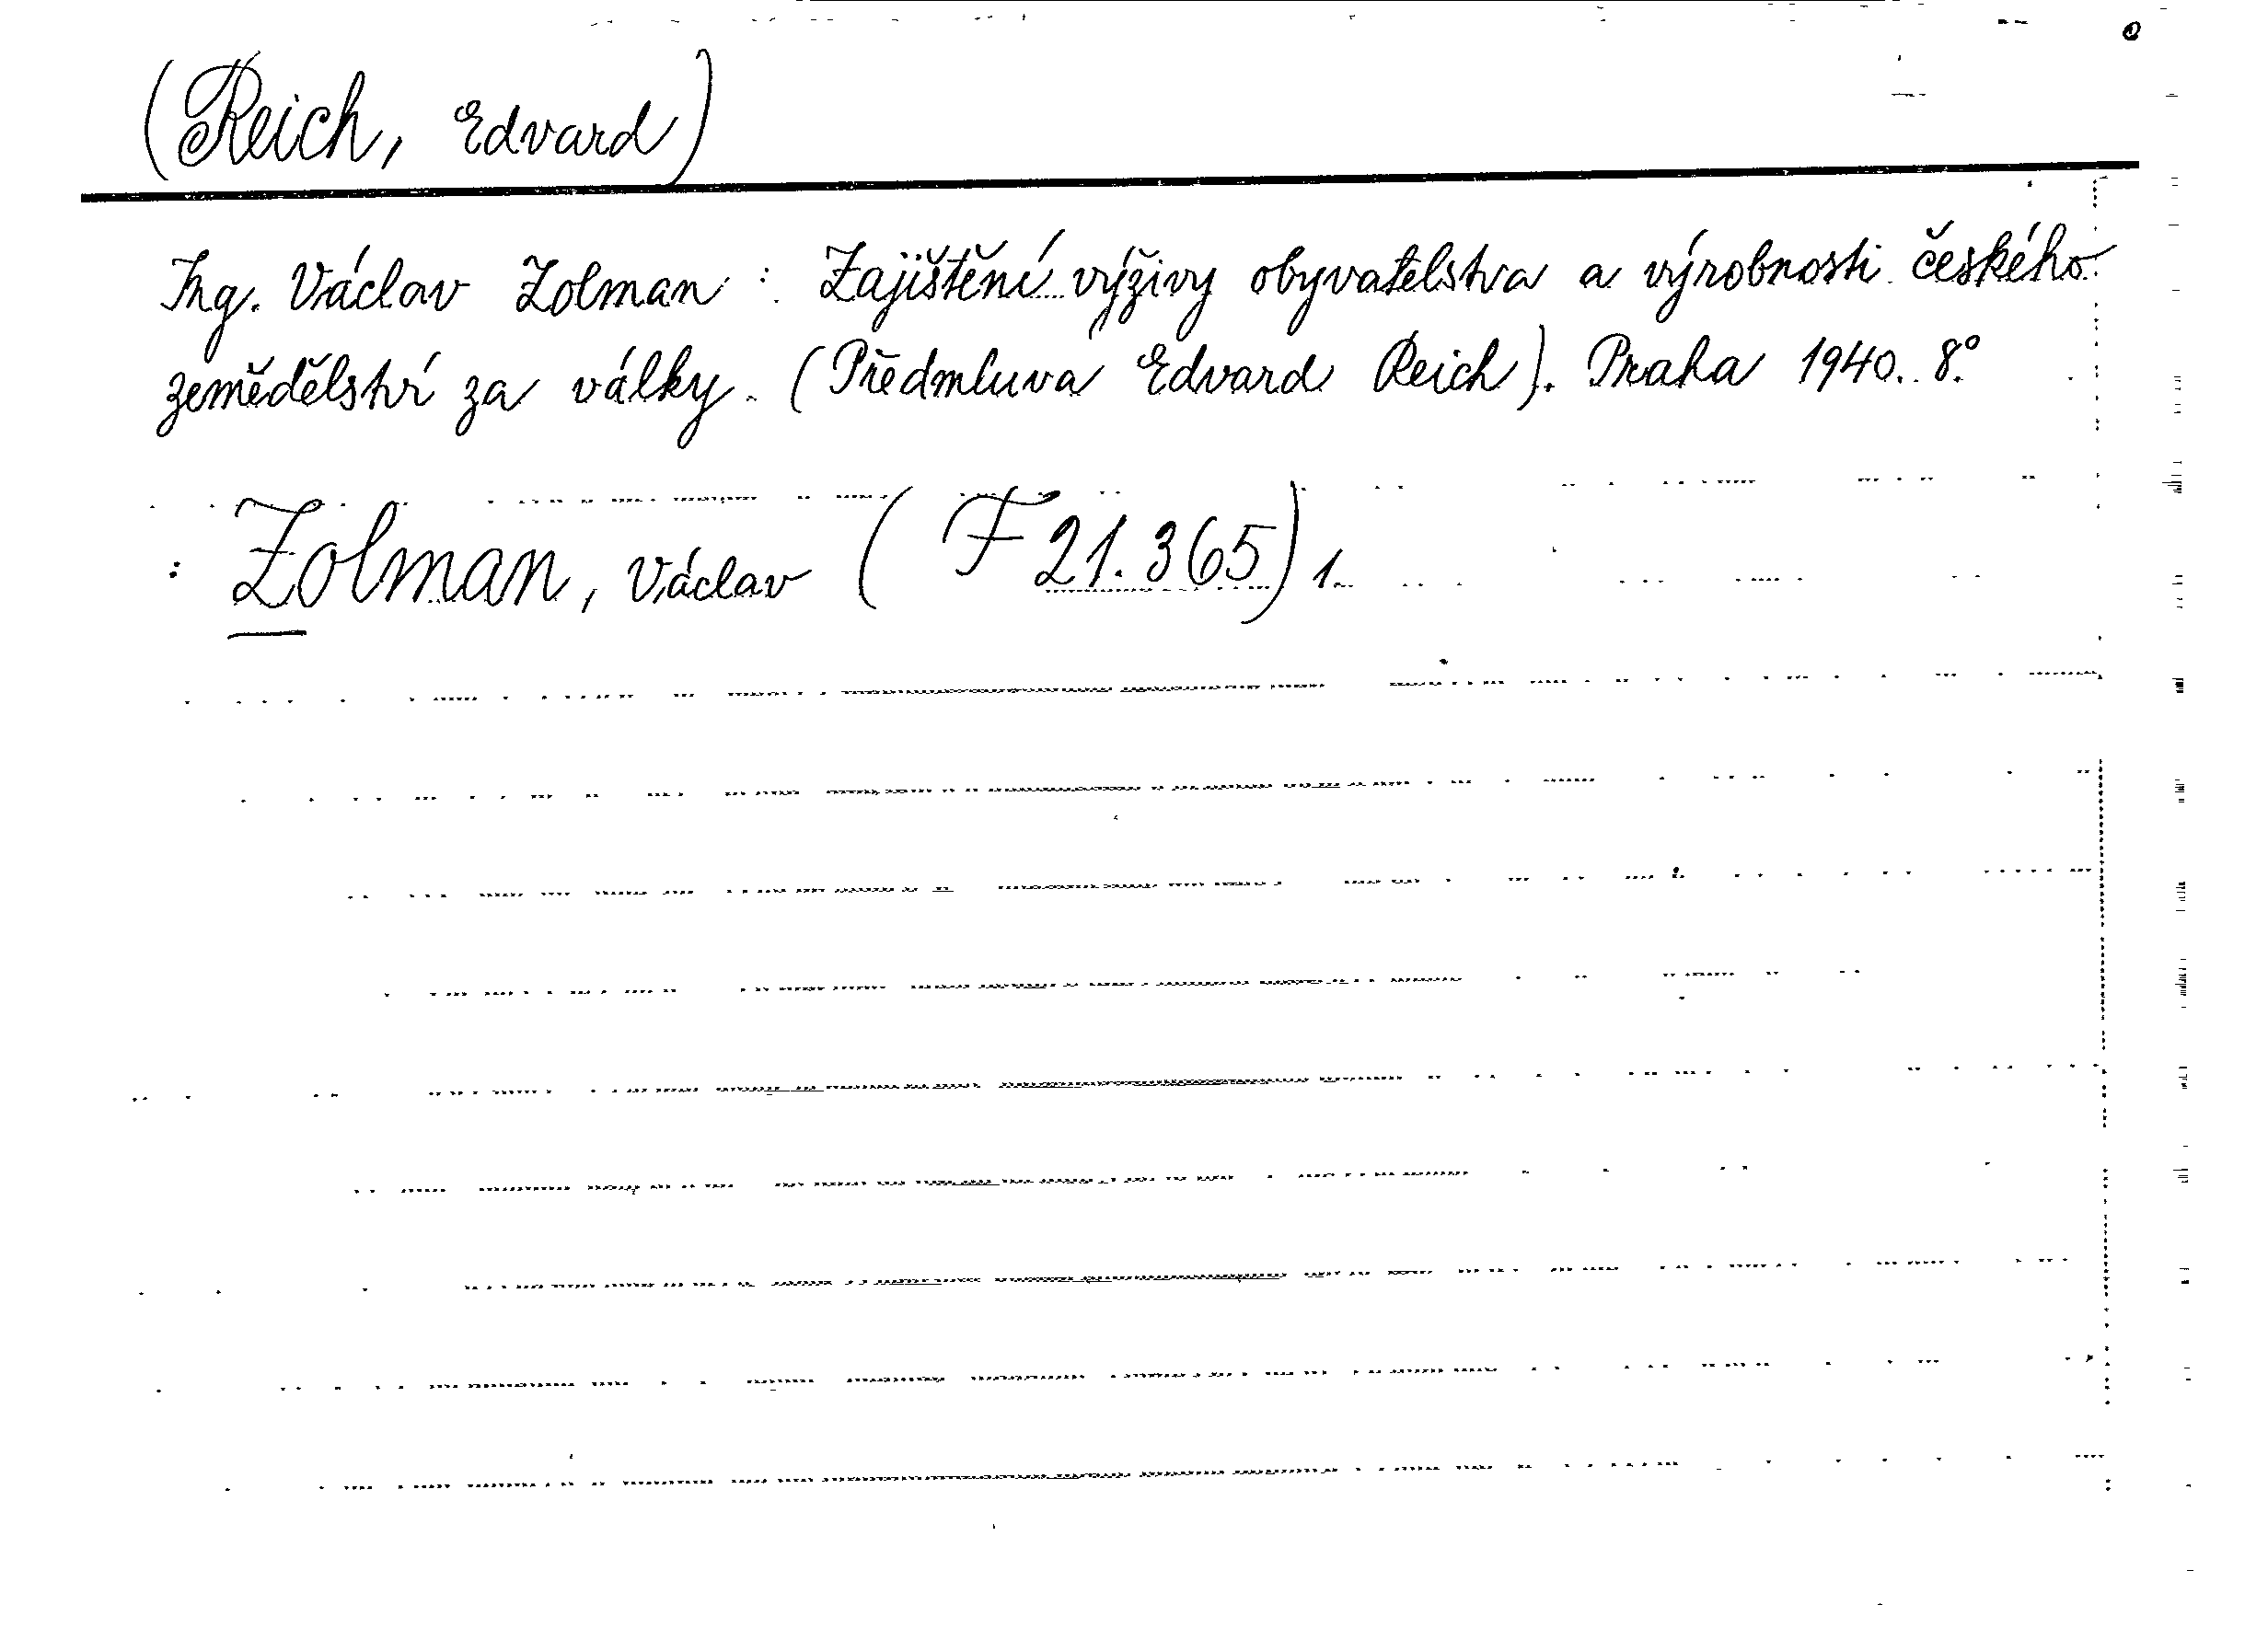 (Reich, Edvard)
Ing. Václav Zolman : Zajištění výživy obyvatelstva a výrobnosti českého
zemědělství za války. (Předmluva Edvard Reich). Praha 1940. 8°
: Zolman, Václav ( F 21.365) 1.